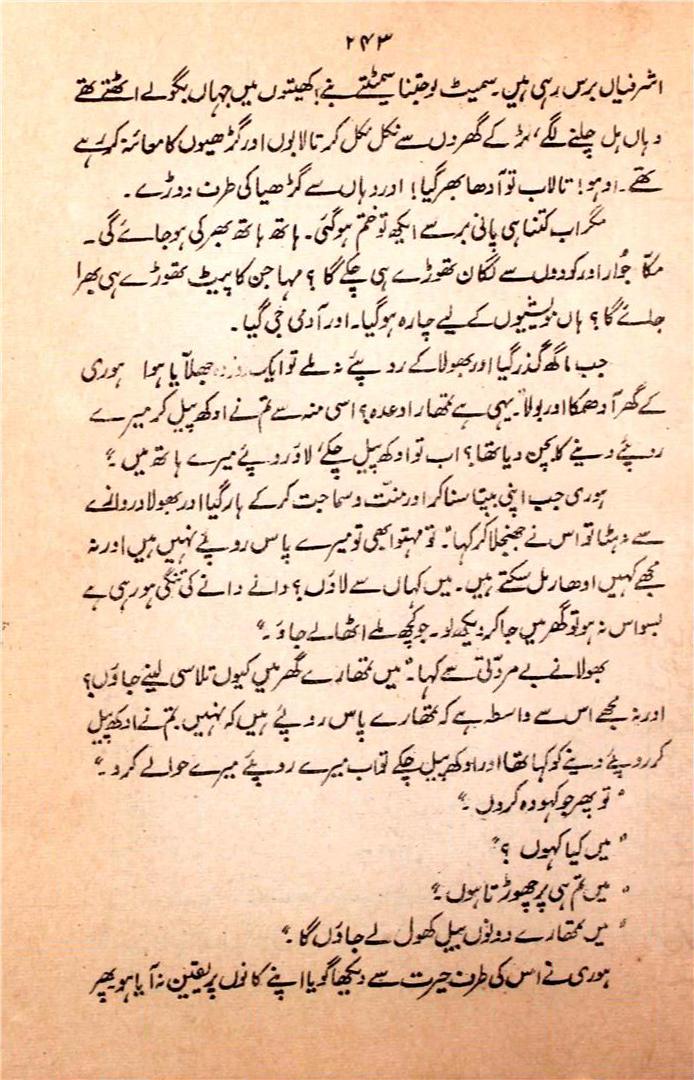 ۲۴۳
اشرفیاں برس رہی ہیں۔ سمیٹ لو جتنا سمیٹتے بنے؛ کھیتوں میں جہاں بگولے اٹھتے تھے
وہاں ہل چلنے لگے، کے گھروں سے نکل نکل کر تالابوں اور گڑھیوں کا معائنہ کر رہے
تھے۔ اوہو! تالاب تو آدھا بھر گیا! اور وہاں سے گڑھیا کی طرف دوڑے۔
مگر اب کتنا ہی پانی برسے ایکھ تو ختم ہو گئی۔ ہاتھ ہاتھ بھر کی ہو جائے گی۔
مکّا جوار اور کودوں سے لگان تھوڑے ہی چکے گا؟ مہاجن کا پیٹ تھوڑے ہی بھرا
جائے گا؟ ہاں مویشیوں کے لیے چارہ ہو گیا۔ اور آدمی جی گیا۔
جب ماگھ گذر گیا اور بھولا کے روپئے نہ ملے تو ایک روز وہ جھلّایا ہوا ہوری
کے گھر آ دھمکا اور بولا "یہی ہے تمھارا وعدہ؟ اسی منہ سے تم نے اوکھ پیل کر میرے
روپئے دینے کا بچن دیا تھا؟ اب تو اوکھ پیل چکے، لاؤ روپئے میرے ہاتھ میں۔"
ہوری جب اپنی بپتا سنا کر اور منّت و سماجت کر کے ہار گیا اور بھولا دروازے
سے نہ ہٹا تو اس نے جھنجلا کر کہا "تو مہتو ابھی تو میرے پاس روپئے نہیں ہیں اور نہ
مجھے کہیں ادھار مل سکتے ہیں۔ میں کہاں سے لاؤں؟ دانے دانے کی تنگی ہو رہی ہے
بسواس نہ ہو تو گھر میں جا کر دیکھ لو۔ جو کچھ ملے اٹھا لے جاؤ۔"
بھولا نے بے مروّتی سے کہا۔ "میں تمھارے گھر میں کیوں تلاسی لینے جاؤں؟
اور نہ مجھے اس سے واسطہ ہے کہ تمھارے پاس روپئے ہیں کہ نہیں۔ تم نے اوکھ پیل
کر روپئے دینے کو کہا تھا اور اوکھ پیل چکے تو اب میرے روپئے میرے حوالے کرو۔"
"تو پھر جو کہو وہ کروں۔"
"میں کیا کہوں؟"
"میں تم ہی پر چھوڑتا ہوں۔"
"میں تمھارے دونوں بیل کھول لے جاؤں گا۔"
ہوری نے اس کی طرف حیرت سے دیکھا گویا اپنے کانوں پر یقین نہ آیا ہو پھر